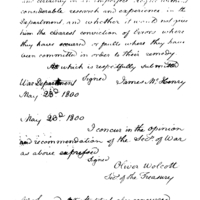 considerable research and experience in the
department, and whether it would not give
him the clearest conviction of errors where
they have occured or guilt where they have
been committed in order to their remedy
All which is respectfully submitted
Signed
War Department James McHenry
May 28d 1800
May 28d 1800
I concur in the opinion
and recommendation of the Secy of War
as above expressed
Signed
Oliver Wolcott
Secy of the Treasury